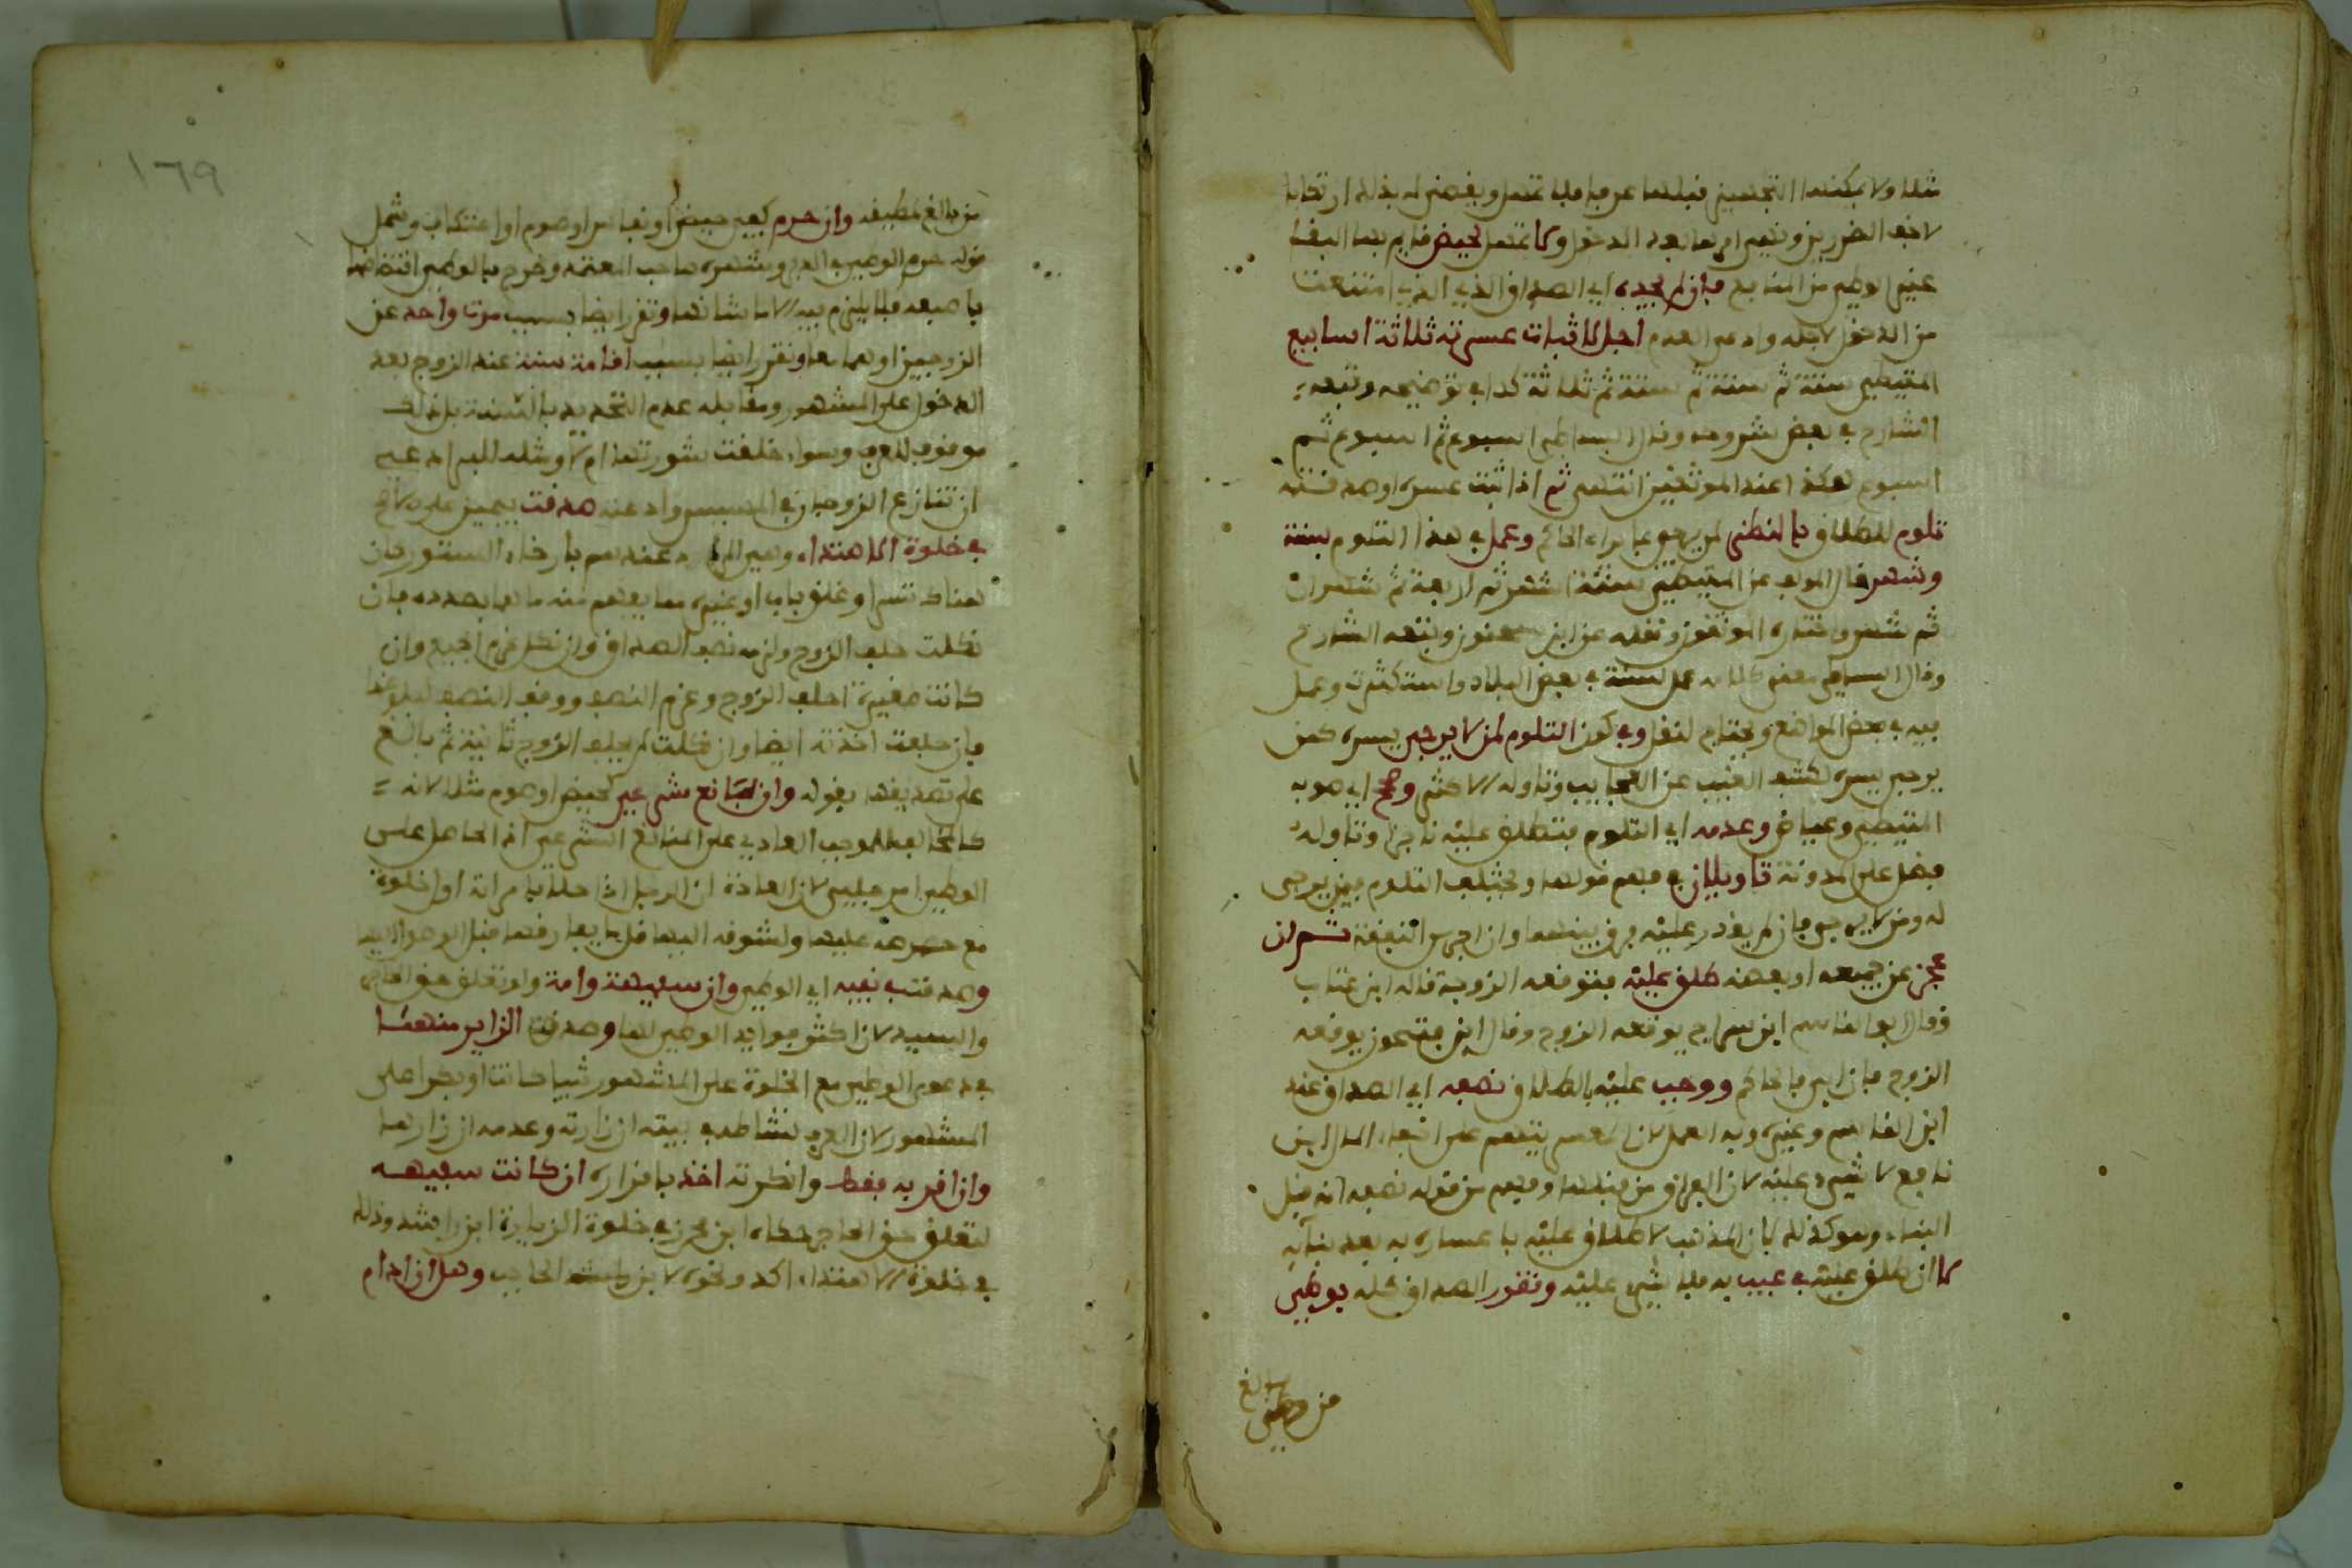 مثلا ولا يمكنها التجهيز قبلهما عرفا فلا تمهل ويقضى له بذلك ارتكابا
لاخف الضررين ونفي امهالها بعد الدخول وكما تمهل لحيض قايم بها البنا
غير الوطي من المنافع فان لم يجده اي الصداق الذي امتنعت
من الدخول لاجله وادعى العدم اجل لاثبات عسرته ثلاثة اسابيع
المتيطي ستة ثم ستة ثم ستة ثم ثلاثة كذا في توضيحه وتبعه
الشارح في بعض شروحه وقال البساطي اسبوع ثم اسبوع ثم
اسبوع هكذا عند الموثقين انتهى ثم اذا ثبت عسره او صدقته
تلوم للطلاق بالنظر لمن يرجو براي الحاكم وعمل في هذا التلوم بسنة
وشهر قال المولف عن المتيطي ستة اشهر ثم اربعة ثم شهران
ثم شهر واختاره الموثقون ونقله عن ابن سحنون وتبعه الشارح
وقال البساطي بعض كلامه عمل بسنة في بعض البلاد واستكثرت وعمل
بشهر في بعض المواضع ويحتاج لنقل وفي كون التلوم لمن لا يرجى يسره كمن
يرجى يسره لكشف الغيب عن العجايب وتاوله الاكثر وصحح اي صوبه
المتيطي وعياض وعدمه اي التلوم فتطلق عليه ناجزا وتاوله
فضل على المدونة تاويلان في فهم قولها ويختلف التلوم فيمن يرجى
له ومن لا يرجى فان لم يقدر عليه فرق بينهما وان اجرى النفقة ثم ان
عجز عن جميعه او بعضه طلق عليه فتوقعه الزوجة قاله ابن عتاب
وقال ابو القاسم ابن سراج يوقعه الزوج وقال ابن فتحون يوقعه
الزوج فان ابى فالحاكم ووجب عليه بالطلاق نصفه اي الصداق عند
ابن القاسم وغيره وبه العمل لان المعسر يتهم على اخفاء المال ابن
نافع لا شيء عليه لان الفراق من قبلها وفهم من قوله نصفه انه قبل
البناء وهو كذلك لان المذهب لا طلاق عليه باعساره به بعد بنايه
كما ان طلق عليه في عيب به فلا شيء عليه وتقرر الصداق كله بوطي
من بالغ
من بالغ لمطيقة وان حرم كفي حيض او نفاس او صوم او اعتكاف وشمل
قوله حرم الوطي في الدبر وشهره صاحب المعتمد وخرج بالوطي افتضاضها
باصبعه فلا يلزم فيه الا ما شانها وتقرر ايضا بسبب موت واحد من
الزوجين او هما معا وتقرر ايضا بسبب اقامة سنة عند الزوج بعد
الدخول على المشهور ومقابله عدم التحديد بالسنة بل ذلك
موقوف للعرف وسواء خلقت شورتها ام لا ومثله للبراذعي
ان تنازع الزوجان في المسيس وادعته صدقت بيمين على الاصح
في خلوة الاهتداء وهي المراد عندهم بارخاء الستور كان
هناك ستر او غلق باب او غيره مما يفهم منه ما هما بصدده فان
نكلت حلف الزوج ولزمه نصف الصداق وان نكل غرم الجميع وان
كانت صغيرة احلف الزوج وغرم النصف ووقف النصف لبلوغها
فان حلفت اخذته ايضا وان نكلت لم يحلف الزوج ثانية ثم بالغ
على تصديقها بقوله وان بمانع شرعي كحيض او صوم مثلا لانه
كالمخالف للموجب العادي على المانع الشرعي اذ الحامل على
الوطي امر جبلي لان العادة ان الرجل اذا خلا بامراته اول خلوة
مع حرصه عليها ولشوقه اليها قل ما يفارقها قبل الوصول اليها
وصدقت في نفيه اي الوطي وان سفيهة وامة ولو تعلق حق الحاجر
والسيد لان اكثر فوايد الوطي لها وصدق الزاير منهما
في دعوى الوطي مع الخلوة على المشهور ثيبا كانت او بكرا على
المشهور لان العرف نشاطه في بيته ان زارته وعدمه ان زارها
وان اقر به فقط وانكرته اخذ باقراره ان كانت سفيهة
لتعلق حق الحاجر حكاه ابن محرز في خلوة الزيارة ابن راشد وذلك
في خلوة الاهتداء اكد ونحوه لابن الحاجب وهل ان ادام
١٦٩